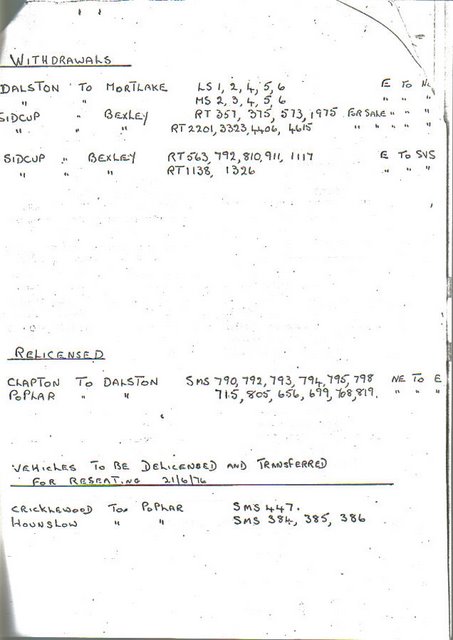 WITHDRAWALS
DALSTON TO MORTLAKE LS 1, 2, 4, 5, 6 E TO
" " MS 2, 3, 4, 5, 6 " " "
SIDCUP " BEXLEY RT 357, 375, 573, 1975 FOR SALE " " "
" " " RT 2201, 3323, 4406, 4615 " " " " "
SIDCUP " BEXLEY RT 563, 792, 810, 911, 1117 E TO SVS
" " " RT 1138, 1326 " " "
RELICENSED
CLAPTON TO DALSTON SMS 790, 792, 793, 794, 795, 798 NE TO E
POPLAR " " 715, 805, 656, 699, 768, 819. " " "
VEHICLES TO BE DELICENSED AND TRANSFERRED
FOR RESEATING 21/6/76
CRICKLEWOOD TO POPLAR SMS 447.
HOUNSLOW " " SMS 384, 385, 386